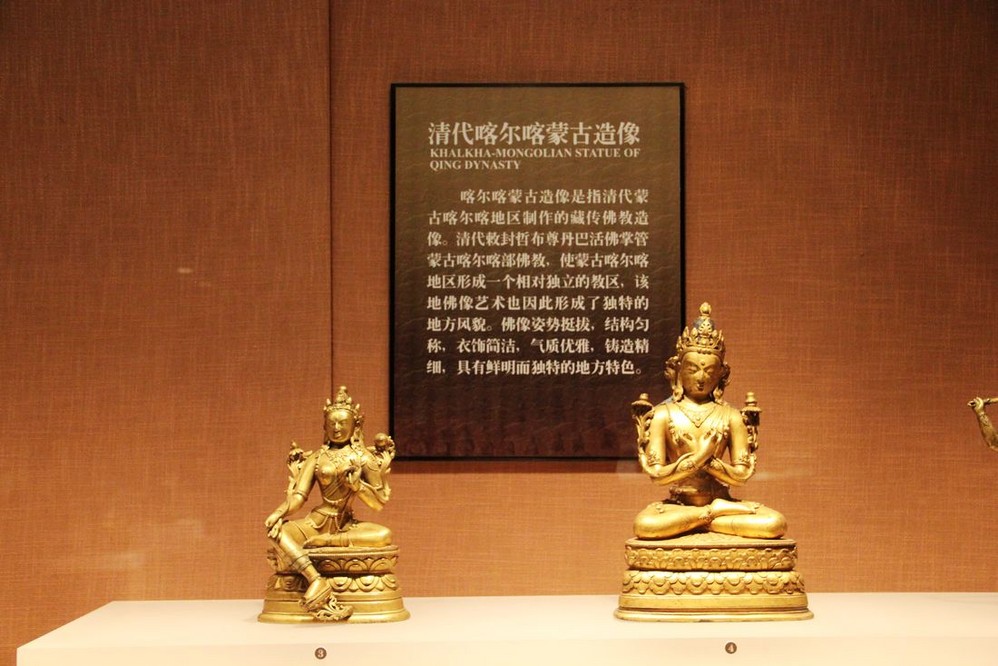 清代喀尔喀蒙古造像
KHALKHA-MONGOLIAN STATUE OF
QING DYNASTY
喀尔喀蒙古造像是指清代蒙
古喀尔喀地区制作的藏传佛教造
像。清代敕封哲布尊丹巴活佛掌管
蒙古喀尔喀部佛教，使蒙古喀尔喀
地区形成一个相对独立的教区，该
地佛像艺术也因此形成了独特的
地方风貌。佛像姿势挺拔，结构匀
称，衣饰简洁，气质优雅，铸造精
细，具有鲜明而独特的地方特色。
3
4